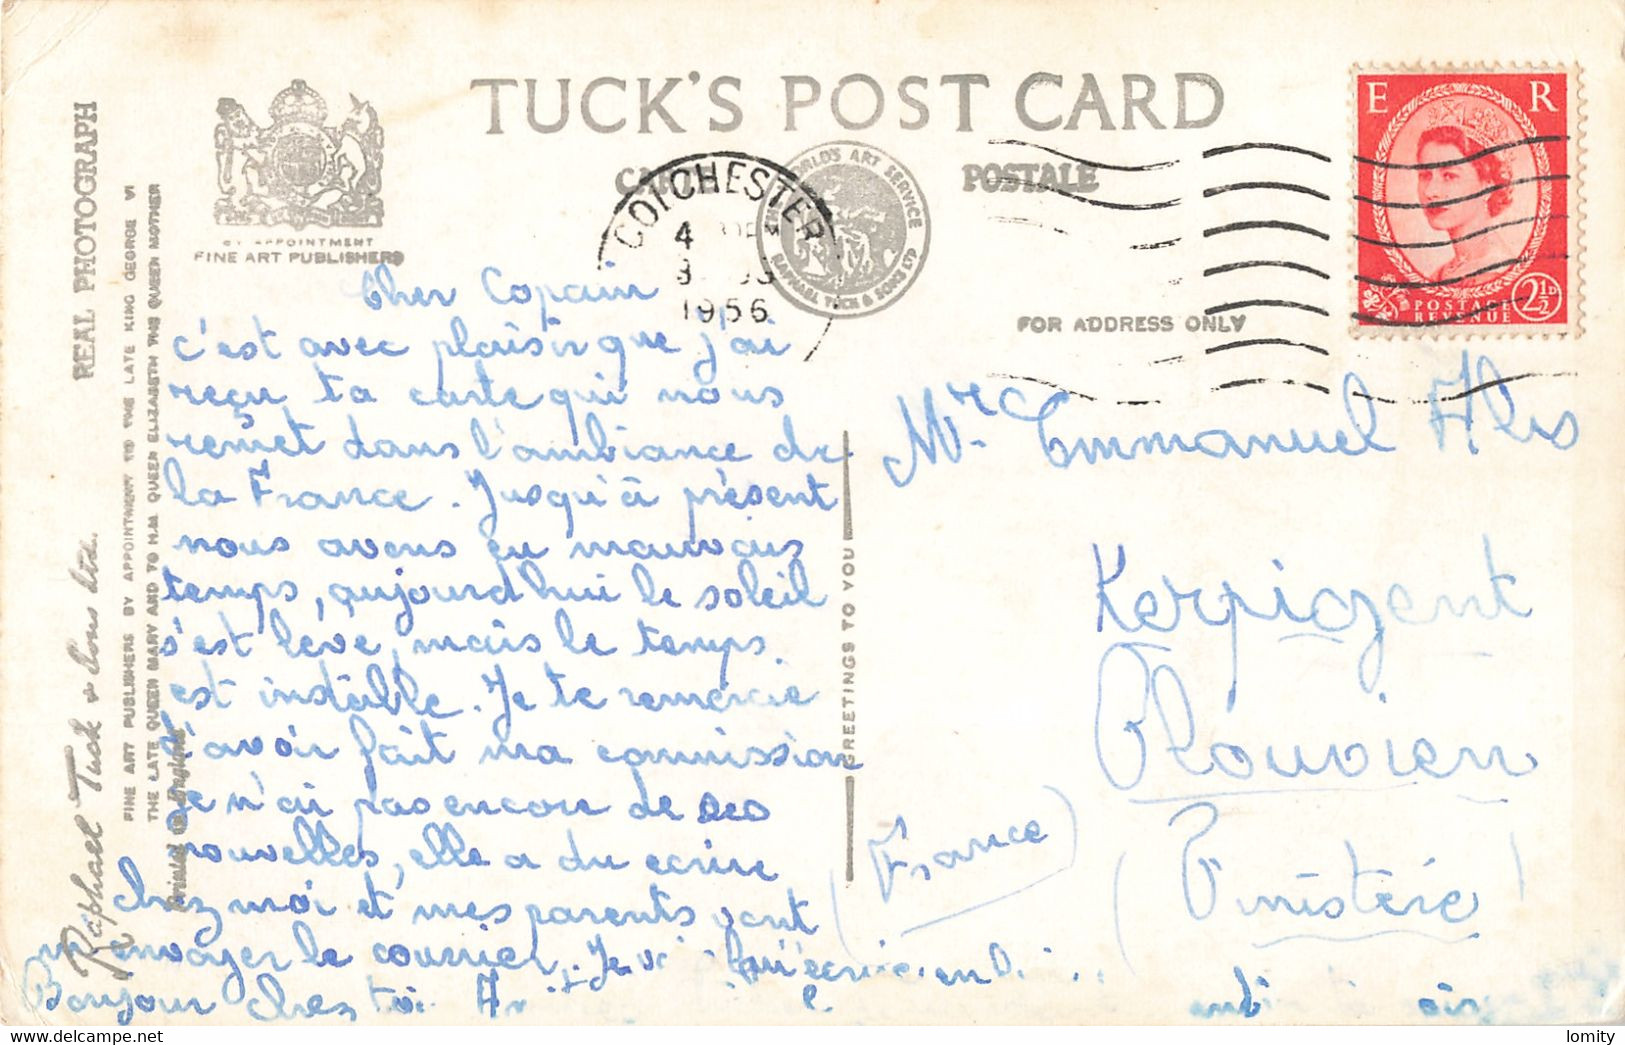 TUCK'S POST CARD
CARTE POSTALE
THE WORLD'S ART SERVICE
RAPHAEL TUCK & SONS LTD
COLCHESTER
4
1956
E R
POSTAGE
REVENUE
2½D
BY APPOINTMENT
FINE ART PUBLISHERS
FOR ADDRESS ONLY
REAL PHOTOGRAPH
Raphael Tuck & Sons Ltd.
FINE ART PUBLISHERS BY APPOINTMENT TO THE LATE KING GEORGE VI
THE LATE QUEEN MARY AND TO H.M. QUEEN ELIZABETH THE QUEEN MOTHER
Printed in England
GREETINGS TO YOU
Cher Copain
c'est avec plaisir que j'ai
reçu ta carte qui nous
remet dans l'ambiance de
la France. Jusqu'à présent
nous avons eu mauvais
temps, aujourd'hui le soleil
s'est levé, mais le temps
est instable. Je te remercie
d'avoir fait ma commission
je n'ai pas encore de ses
nouvelles, elle a du ecrire
chez moi et mes parents vont
m'envoyer le courrier. Je
Bonjour chez toi
Mr. Emmanuel
Kerpigent
Plouvien
(Finistère)
(France)
lomity